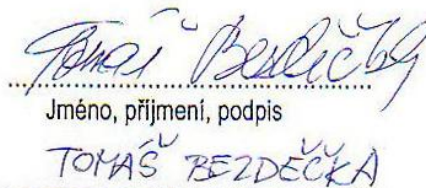 Tomáš Bezděčka
Jméno, příjmení, podpis
TOMÁŠ BEZDĚČKA